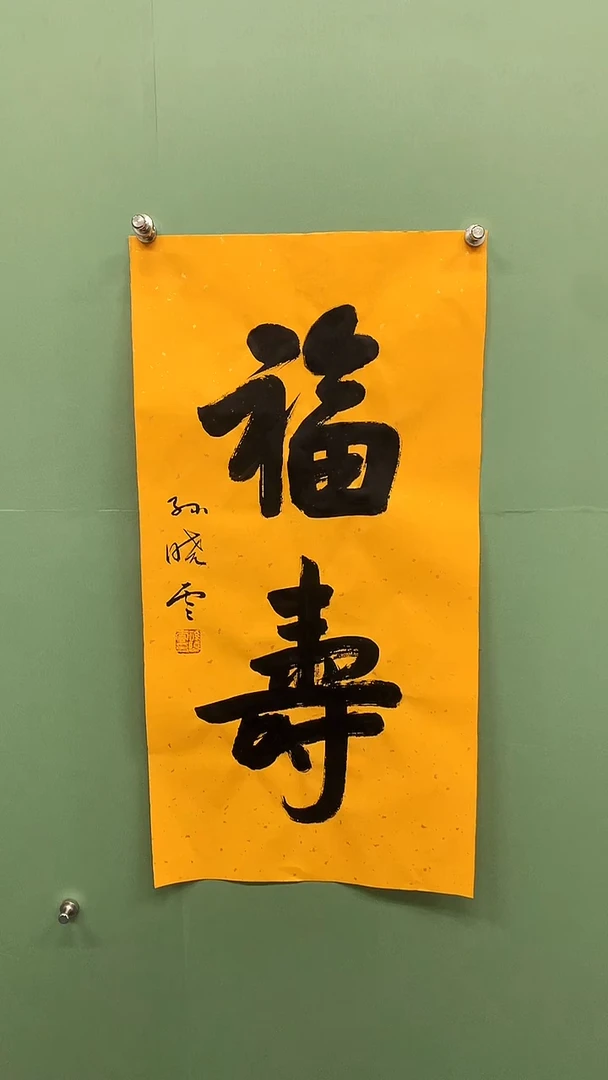 福壽
孙晓云